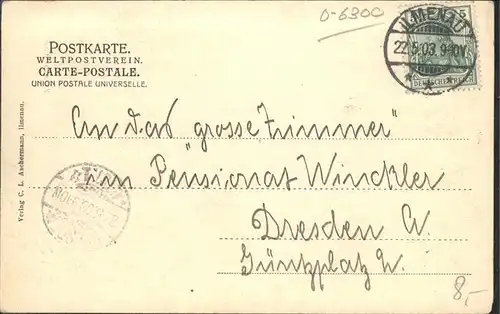 0-6300
POSTKARTE.
WELTPOSTVEREIN.
CARTE-POSTALE.
UNION POSTALE UNIVERSELLE.
ILMENAU
22.5.03. 9-10V.
5
DEUTSCHES REICH
An das "grosse Zimmer"
im Pensionat Winckler
Dresden A.
Güntzplatz
Verlag C. L. Aschermann, Ilmenau.
8,-